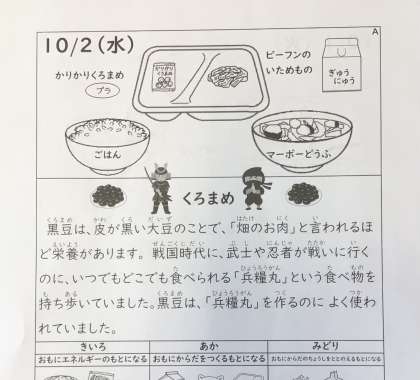 A
10/2(水)
ビーフンの
いためもの
かりかりくろまめ
プラ
かりかり
くろまめ
ぎゅう
にゅう
ごはん
マーボーどうふ
くろまめ
黒豆は、皮が黒い大豆のことで、「畑のお肉」と言われるほ
ど栄養があります。戦国時代に、武士や忍者が戦いに行く
のに、いつでもどこでも食べられる「兵糧丸」という食べ物を
持ち歩いていました。黒豆は、「兵糧丸」を作るのに よく使わ
れていました。
きいろ
あか
みどり
おもにエネルギーのもとになる
おもにからだをつくるもとになる
おもにからだのちょうしをととのえるもとになる